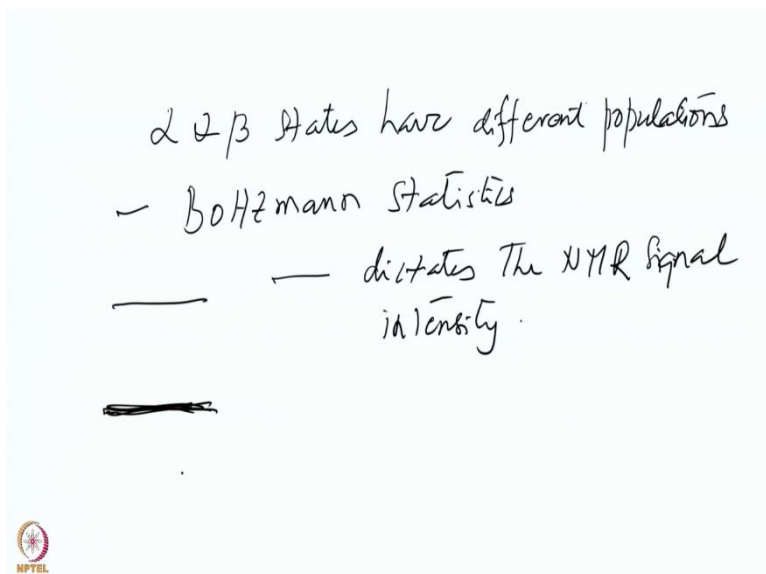 α & β states have different populations
– Boltzmann statistics
— dictates The NMR signal
intensity.
NPTEL